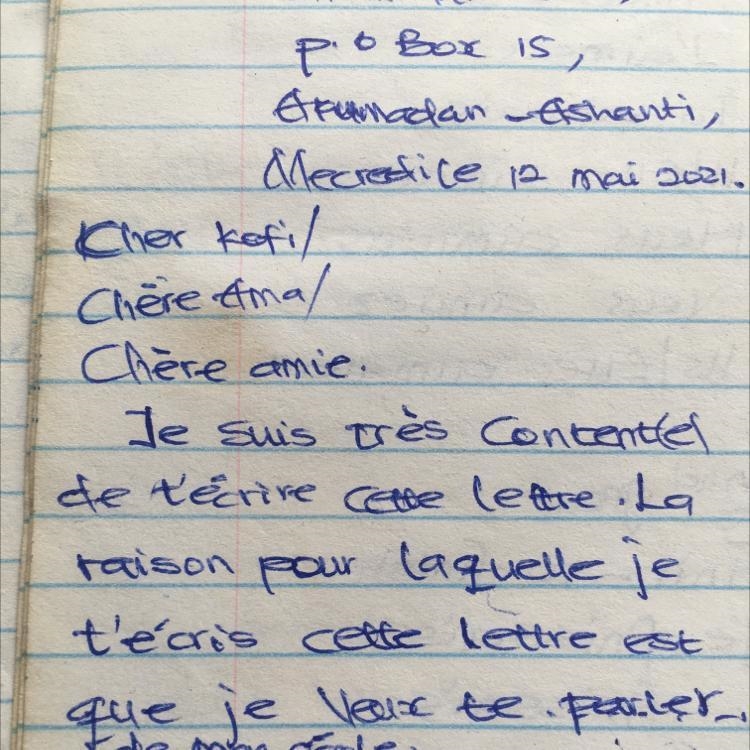 P. O Box 15,
Akumadan - Ashanti,
Mecredi le 12 mai 2021.
Cher Kofi/
Chère Ama/
Chère amie.
Je suis très content(e)
de t'écrire cette lettre. La
raison pour laquelle je
t'écris cette lettre est
que je veux te parler
de mon école.